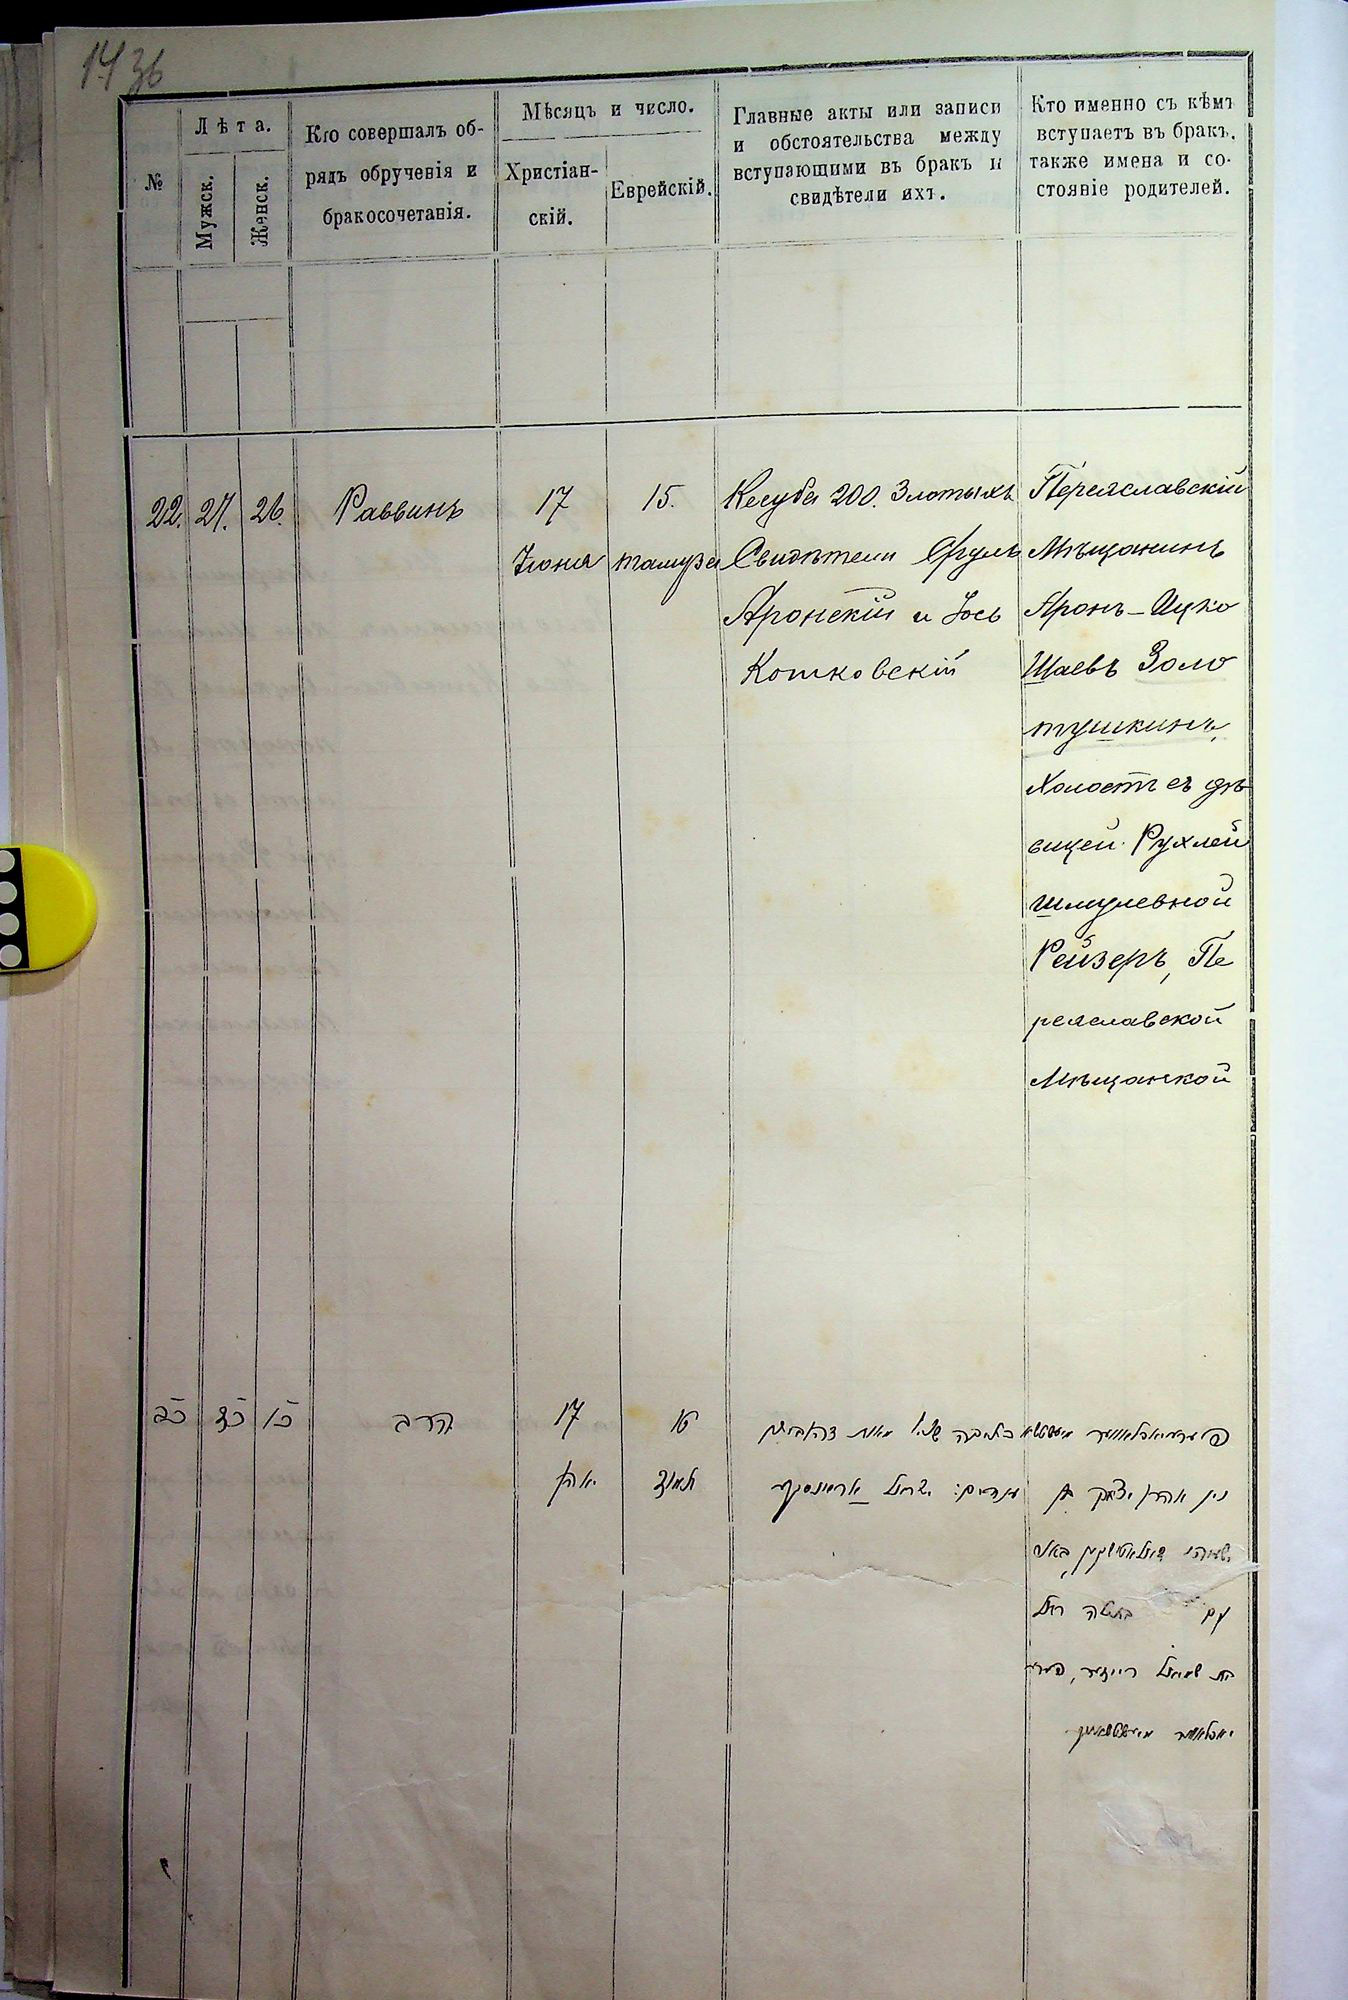 1436
№
Лѣта.
Мужск.
Женск.
Кто совершалъ об-
рядъ обрученія и
бракосочетанія.
Мѣсяцъ и число.
Христіан-
скій.
Еврейскій.
Главные акты или записи
и обстоятельства между
вступающими въ бракъ и
свидѣтели ихъ.
Кто именно съ кѣмъ
вступаетъ въ бракъ,
также имена и со-
стояніе родителей.
22.
27.
26.
Раввинъ
17
Іюня
15.
тамуза
Кесуба 200. Злотыхъ
Свидѣтели Сруль
Аронскій и Іось
Котковскій
Переяславскій
Мѣщанинъ
Аронъ-Ицко
Шаевъ Золо
тушкинъ,
Холостъ съ дѣ
вицей Рухлей
Шмулевной
Рейзеръ, Пе
реяславской
Мѣщанкой
כב
כז
כו
הרב
17
יאהן
טו
תמוז
כתובה מאות
עדים: ישראל
אהרן יצחק בן
עם בתולה רחל
בת שמואל רייזער,